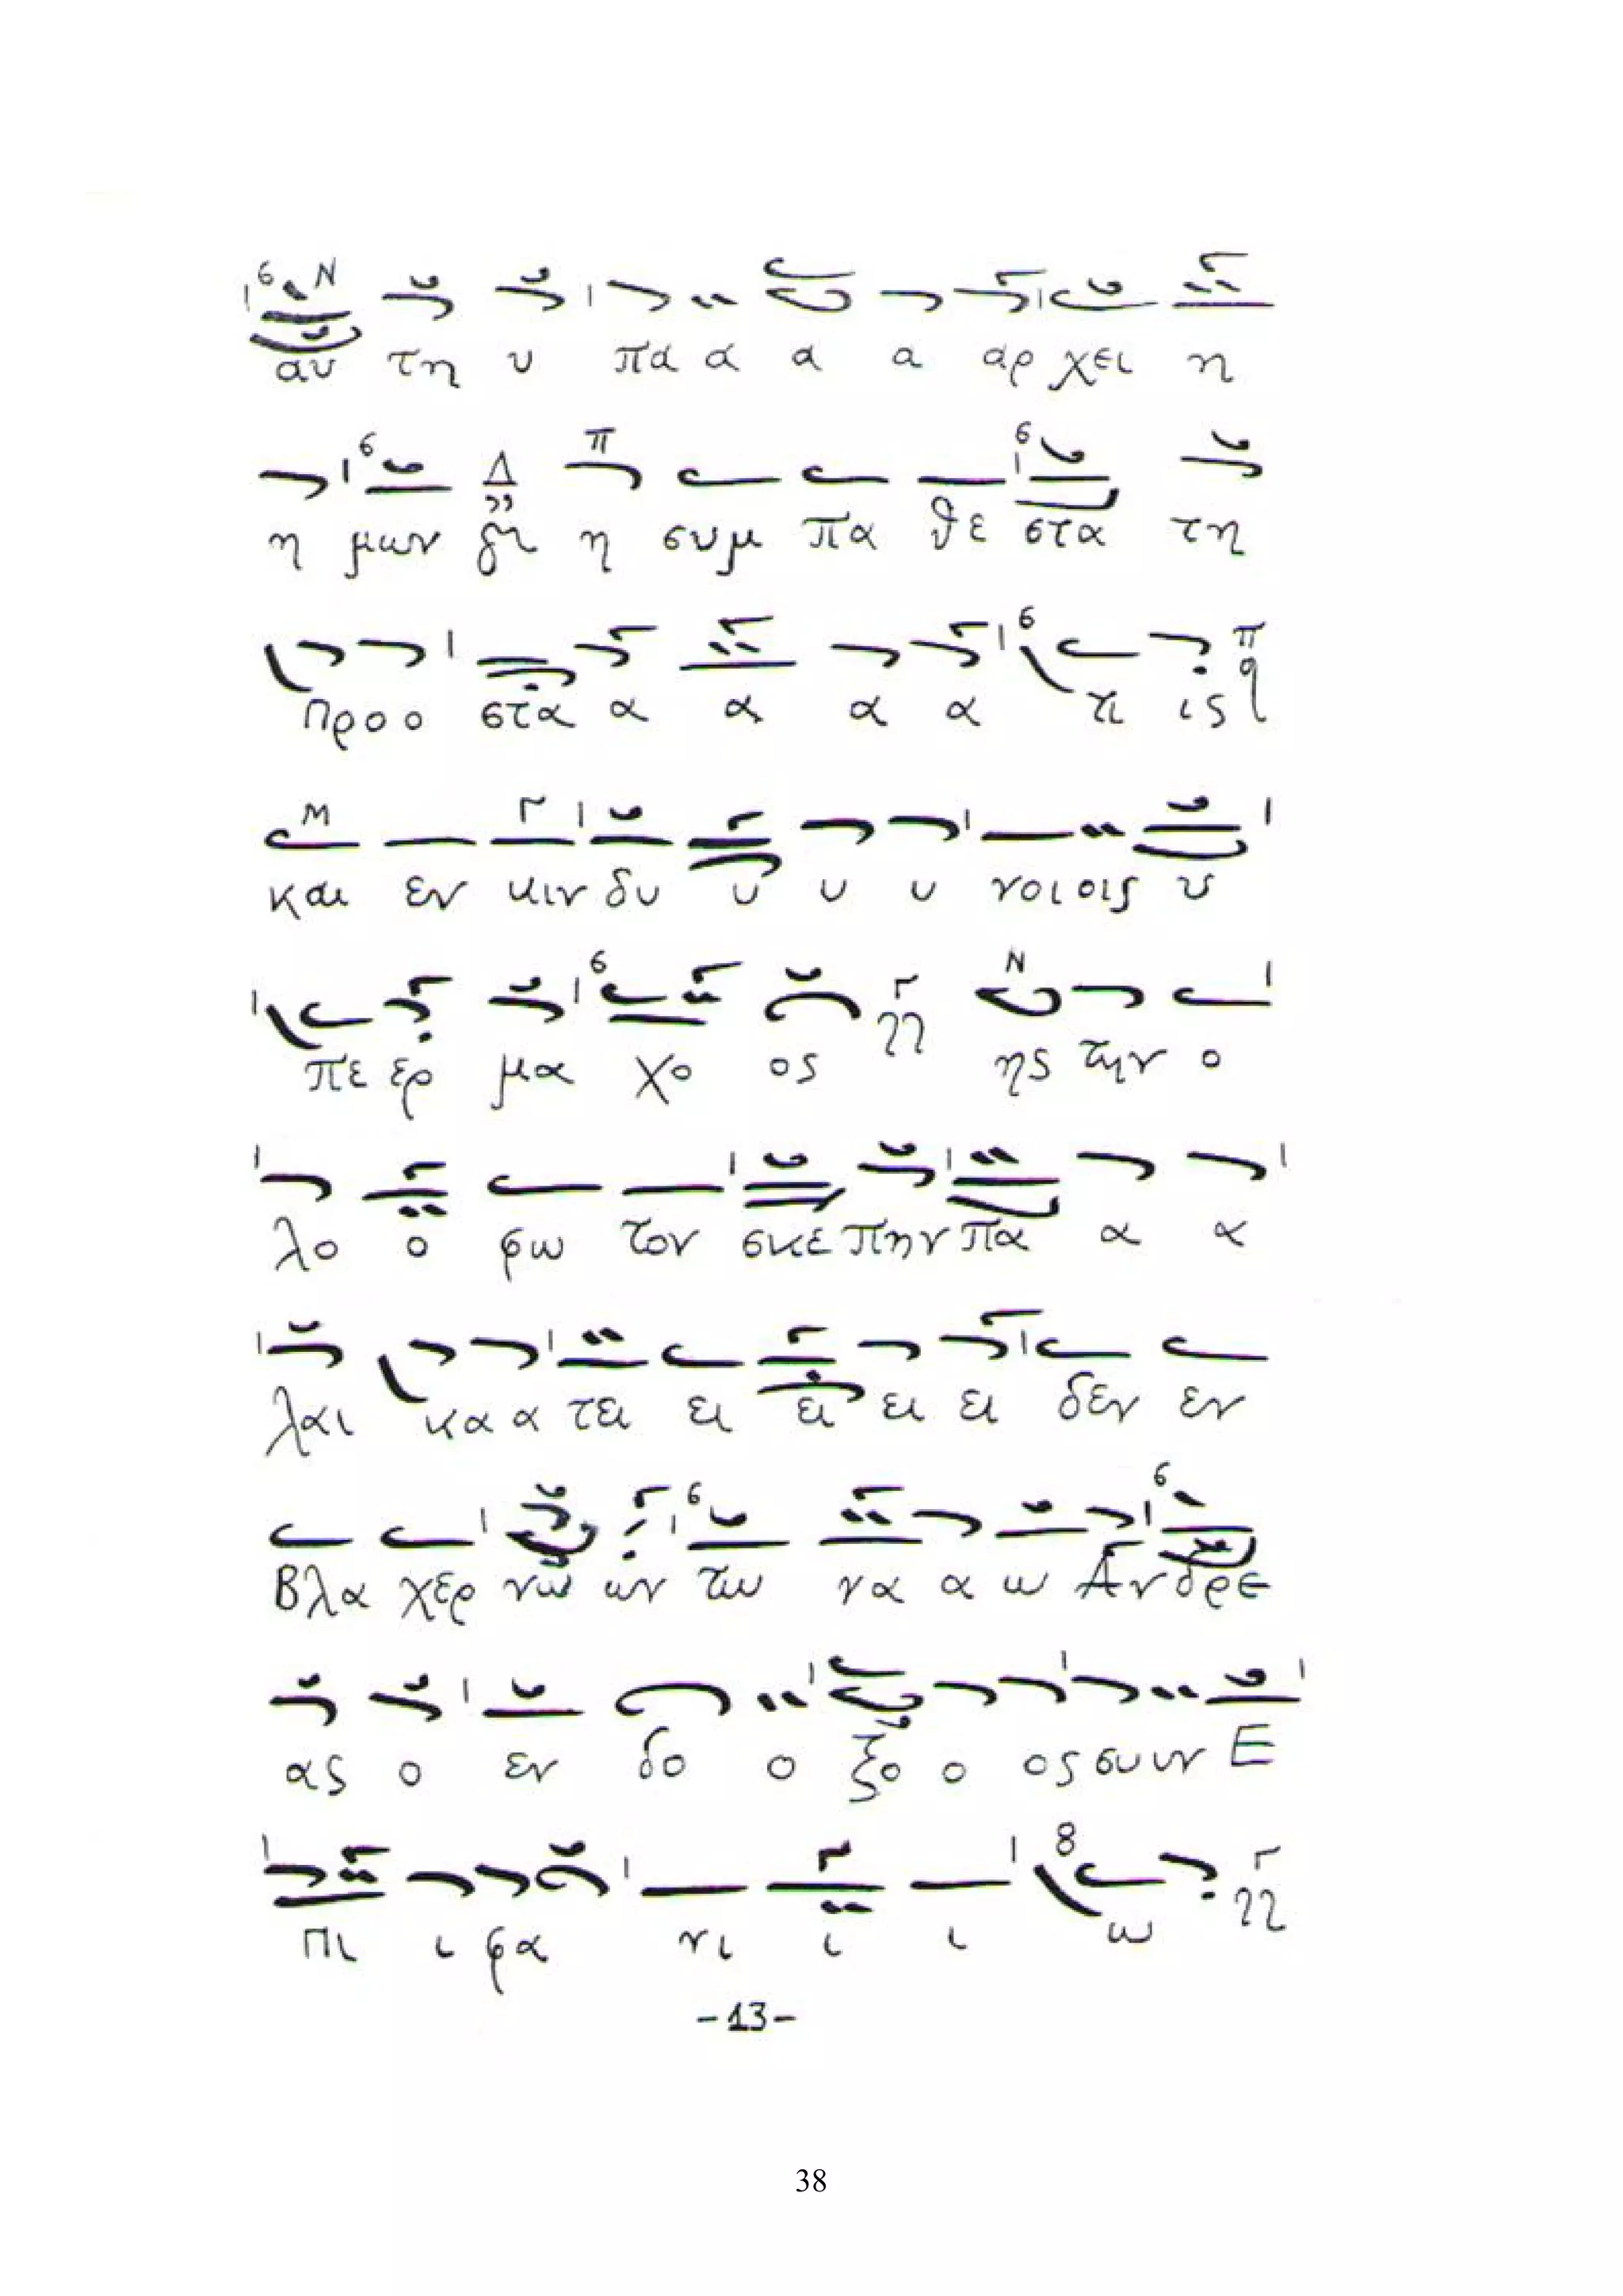 6 Ν
αυ τη υ πα α α α αρ χει η
6 Δ π 6
η μων δι η συμ πα θε στα τη
6 π
προ ο στα α α α α τι ις q
Μ Γ
και εν κιν δυ υ υ υ νοι οις υ
6 Γ Ν
πε ερ μα χο ος ης την ο
λο ο φω τον σκε πην πα α α
λαι κα α τει ει ει ει ει δεν εν
6 6
Βλα χερ νω ων τω να α ω Αν δρε
ας ο εν δο ο ξο ο ος συν Ε
8 Γ
πι ι φα νι ι ι ω
-13-
38